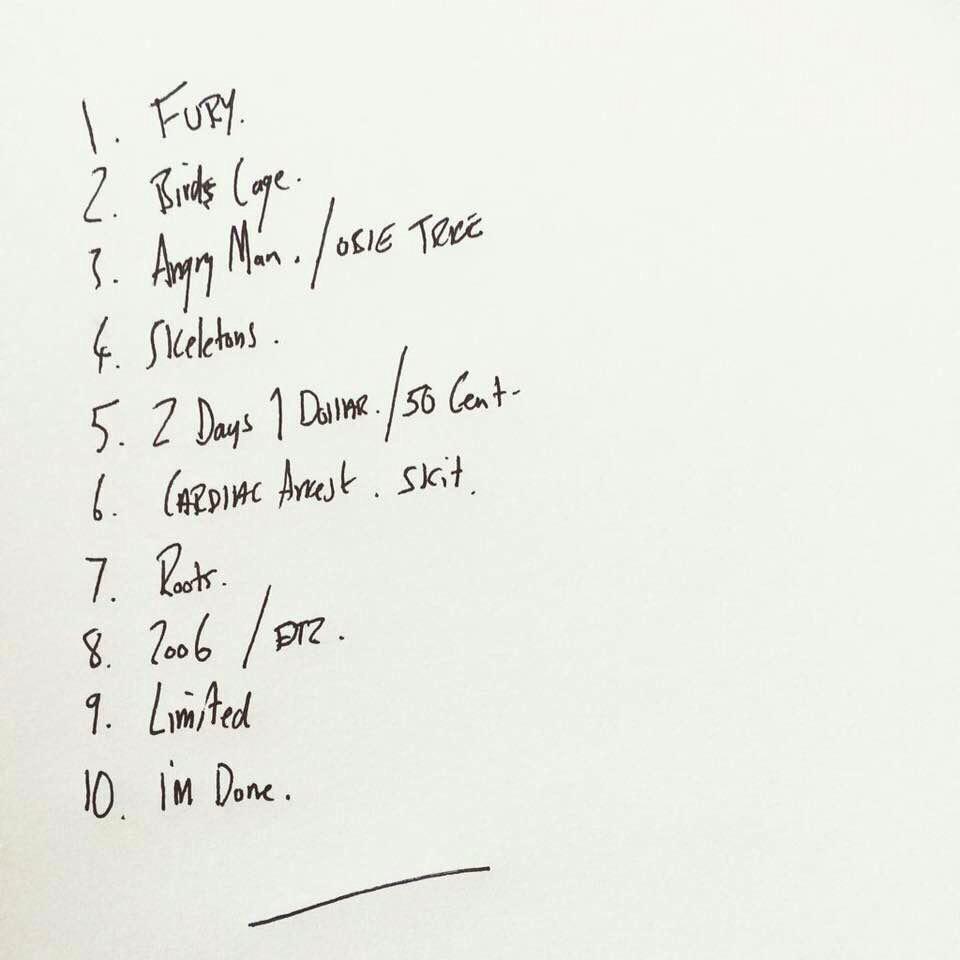 1. FURY.
2. Birds Cage.
3. Angry Man. / OSIE TREE
4. Skeletons.
5. 2 Days 1 DOLLAR. / 50 Cent-
6. CARDIAC Arrest. Skit.
7. Roots.
8. 2006 /
9. Limited
10. I'm Done.